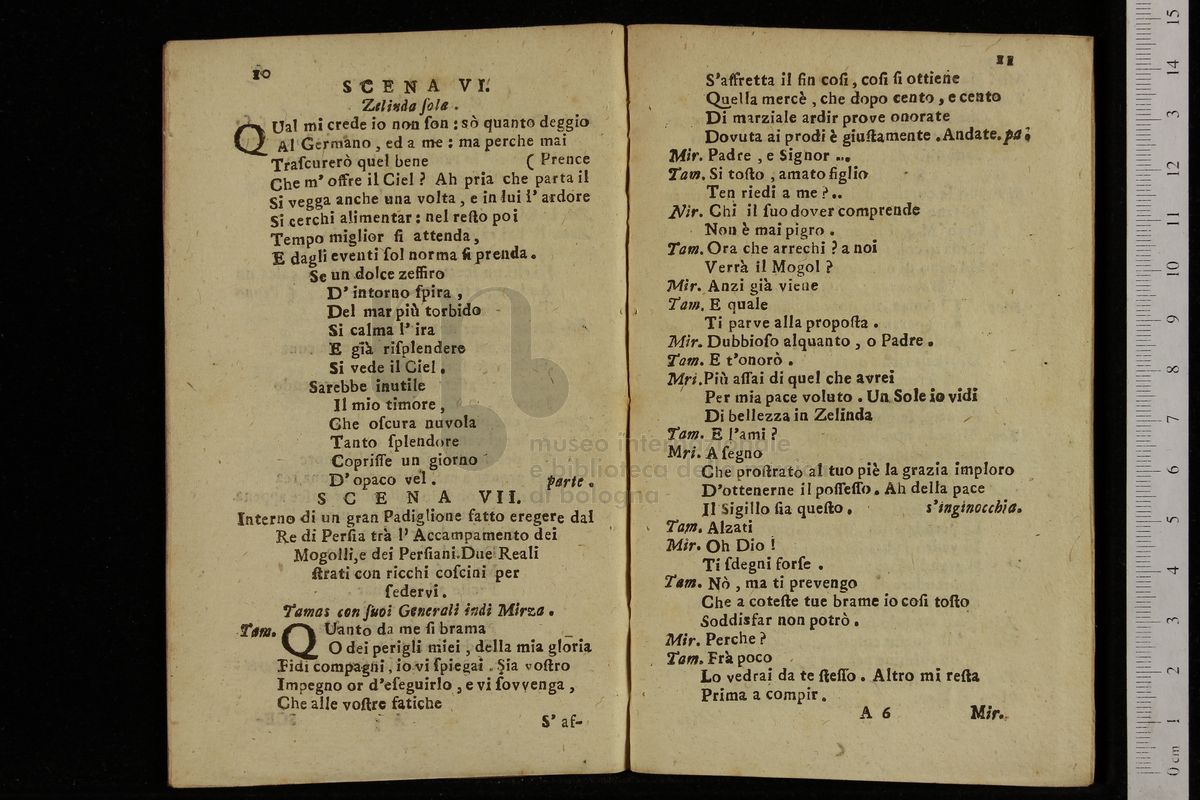 10
SCENA VI.
Zelinda sola.
QUal mi crede io non son: sò quanto deggio
Al Germano, ed a me: ma perche mai
Trascurerò quel bene ( Prence
Che m' offre il Ciel? Ah pria che parta il
Si vegga anche una volta, e in lui l' ardore
Si cerchi alimentar: nel resto poi
Tempo miglior si attenda,
E dagli eventi sol norma si prenda.
Se un dolce zeffiro
D' intorno spira,
Del mar più torbido
Si calma l' ira
E già risplendere
Si vede il Ciel.
Sarebbe inutile
Il mio timore,
Che oscura nuvola
Tanto splendore
Coprisse un giorno
D' opaco vel. parte.
SCENA VII.
Interno di un gran Padiglione fatto eregere dal
Re di Persia trà l' Accampamento dei
Mogolli, e dei Persiani. Due Reali
strati con ricchi coscini per
sedervi.
Tamas con suoi Generali indi Mirza.
Tam. QUanto da me si brama
O dei perigli miei, della mia gloria
Fidi compagni, io vi spiegai. Sia vostro
Impegno or d'eseguirlo, e vi sovvenga,
Che alle vostre fatiche
S' af-
11
S'affretta il fin così, così si ottiene
Quella mercè, che dopo cento, e cento
Di marziale ardir prove onorate
Dovuta ai prodi è giustamente. Andate. pa.
Mir. Padre, e Signor ...
Tam. Si tosto, amato figlio
Ten riedi a me?..
Nir. Chi il suo dover comprende
Non è mai pigro.
Tam. Ora che arrechi? a noi
Verrà il Mogol?
Mir. Anzi già viene
Tam. E quale
Ti parve alla proposta.
Mir. Dubbioso alquanto, o Padre.
Tam. E t'onorò.
Mri. Più assai di quel che avrei
Per mia pace voluto. Un Sole io vidi
Di bellezza in Zelinda
Tam. E l'ami?
Mri. A segno
Che prostrato al tuo piè la grazia imploro
D'ottenerne il possesso. Ah della pace
Il Sigillo sia questo. s'inginocchia.
Tam. Alzati
Mir. Oh Dio!
Ti sdegni forse.
Tam. Nò, ma ti prevengo
Che a coteste tue brame io così tosto
Soddisfar non potrò.
Mir. Perche?
Tam. Frà poco
Lo vedrai da te stesso. Altro mi resta
Prima a compir.
A 6 Mir.
museo internazionale
e biblioteca de
di bologna
0 cm 1 2 3 4 5 6 7 8 9 10 11 12 13 14 15